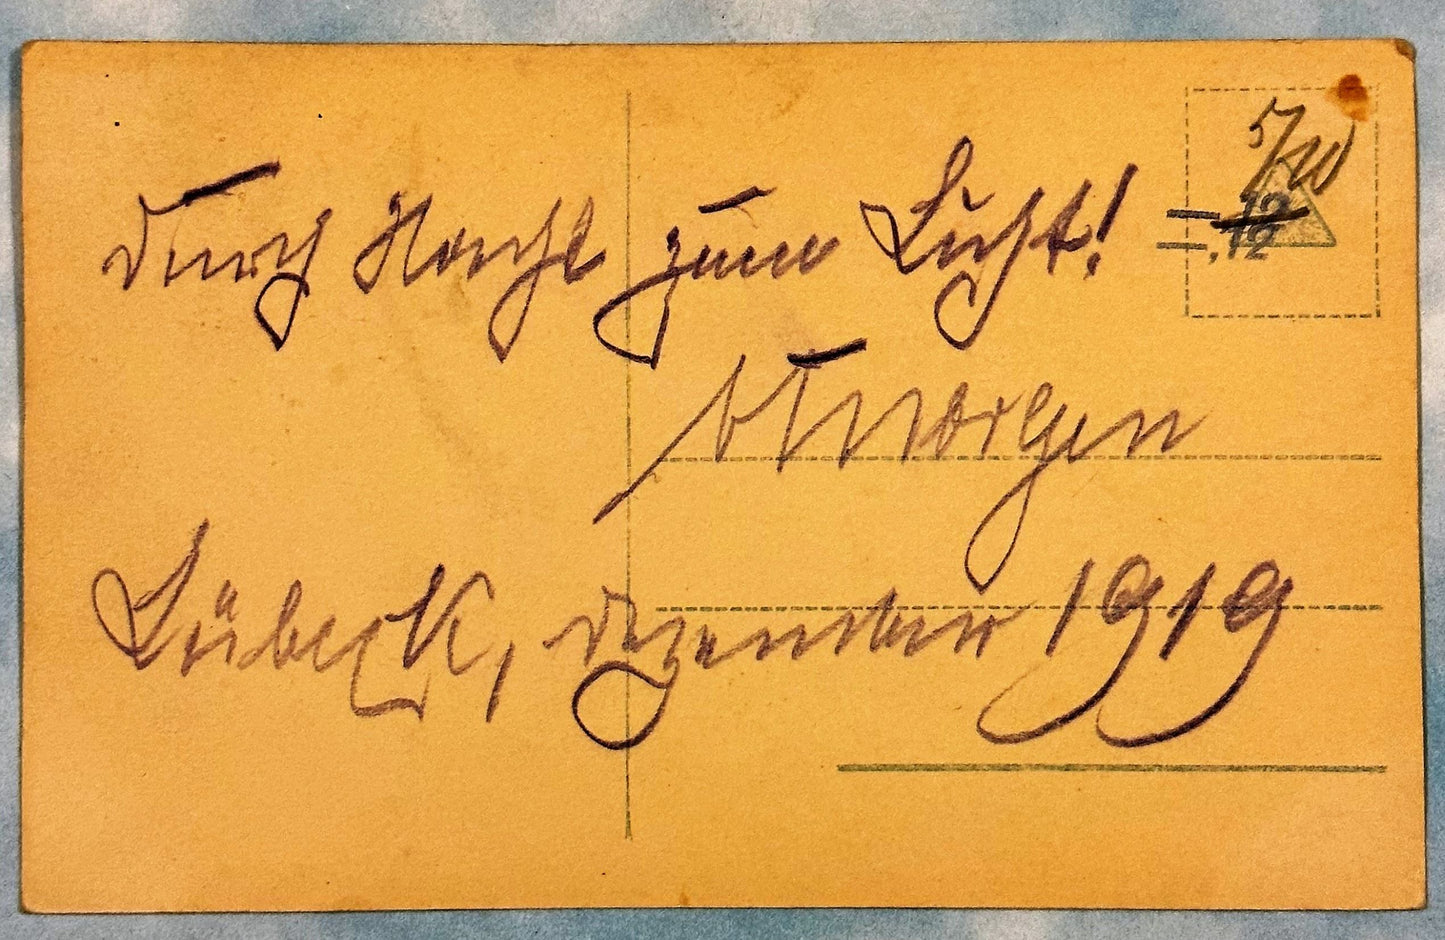 Durch Nacht zum Licht!
Lübeck, Dezember 1919
5/W
-.12
-.12